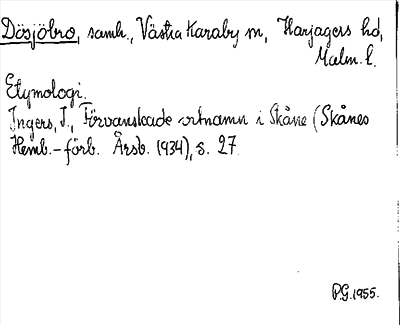 Dösjöbro, samh., Västra Karaby sn, Harjagers hd,
Malm. l.
Etymologi.
Ingers, I., Förvanskade ortnamn i Skåne (Skånes
Hemb.-förb. Årsb. 1934), s. 27.
P.G. 1955.